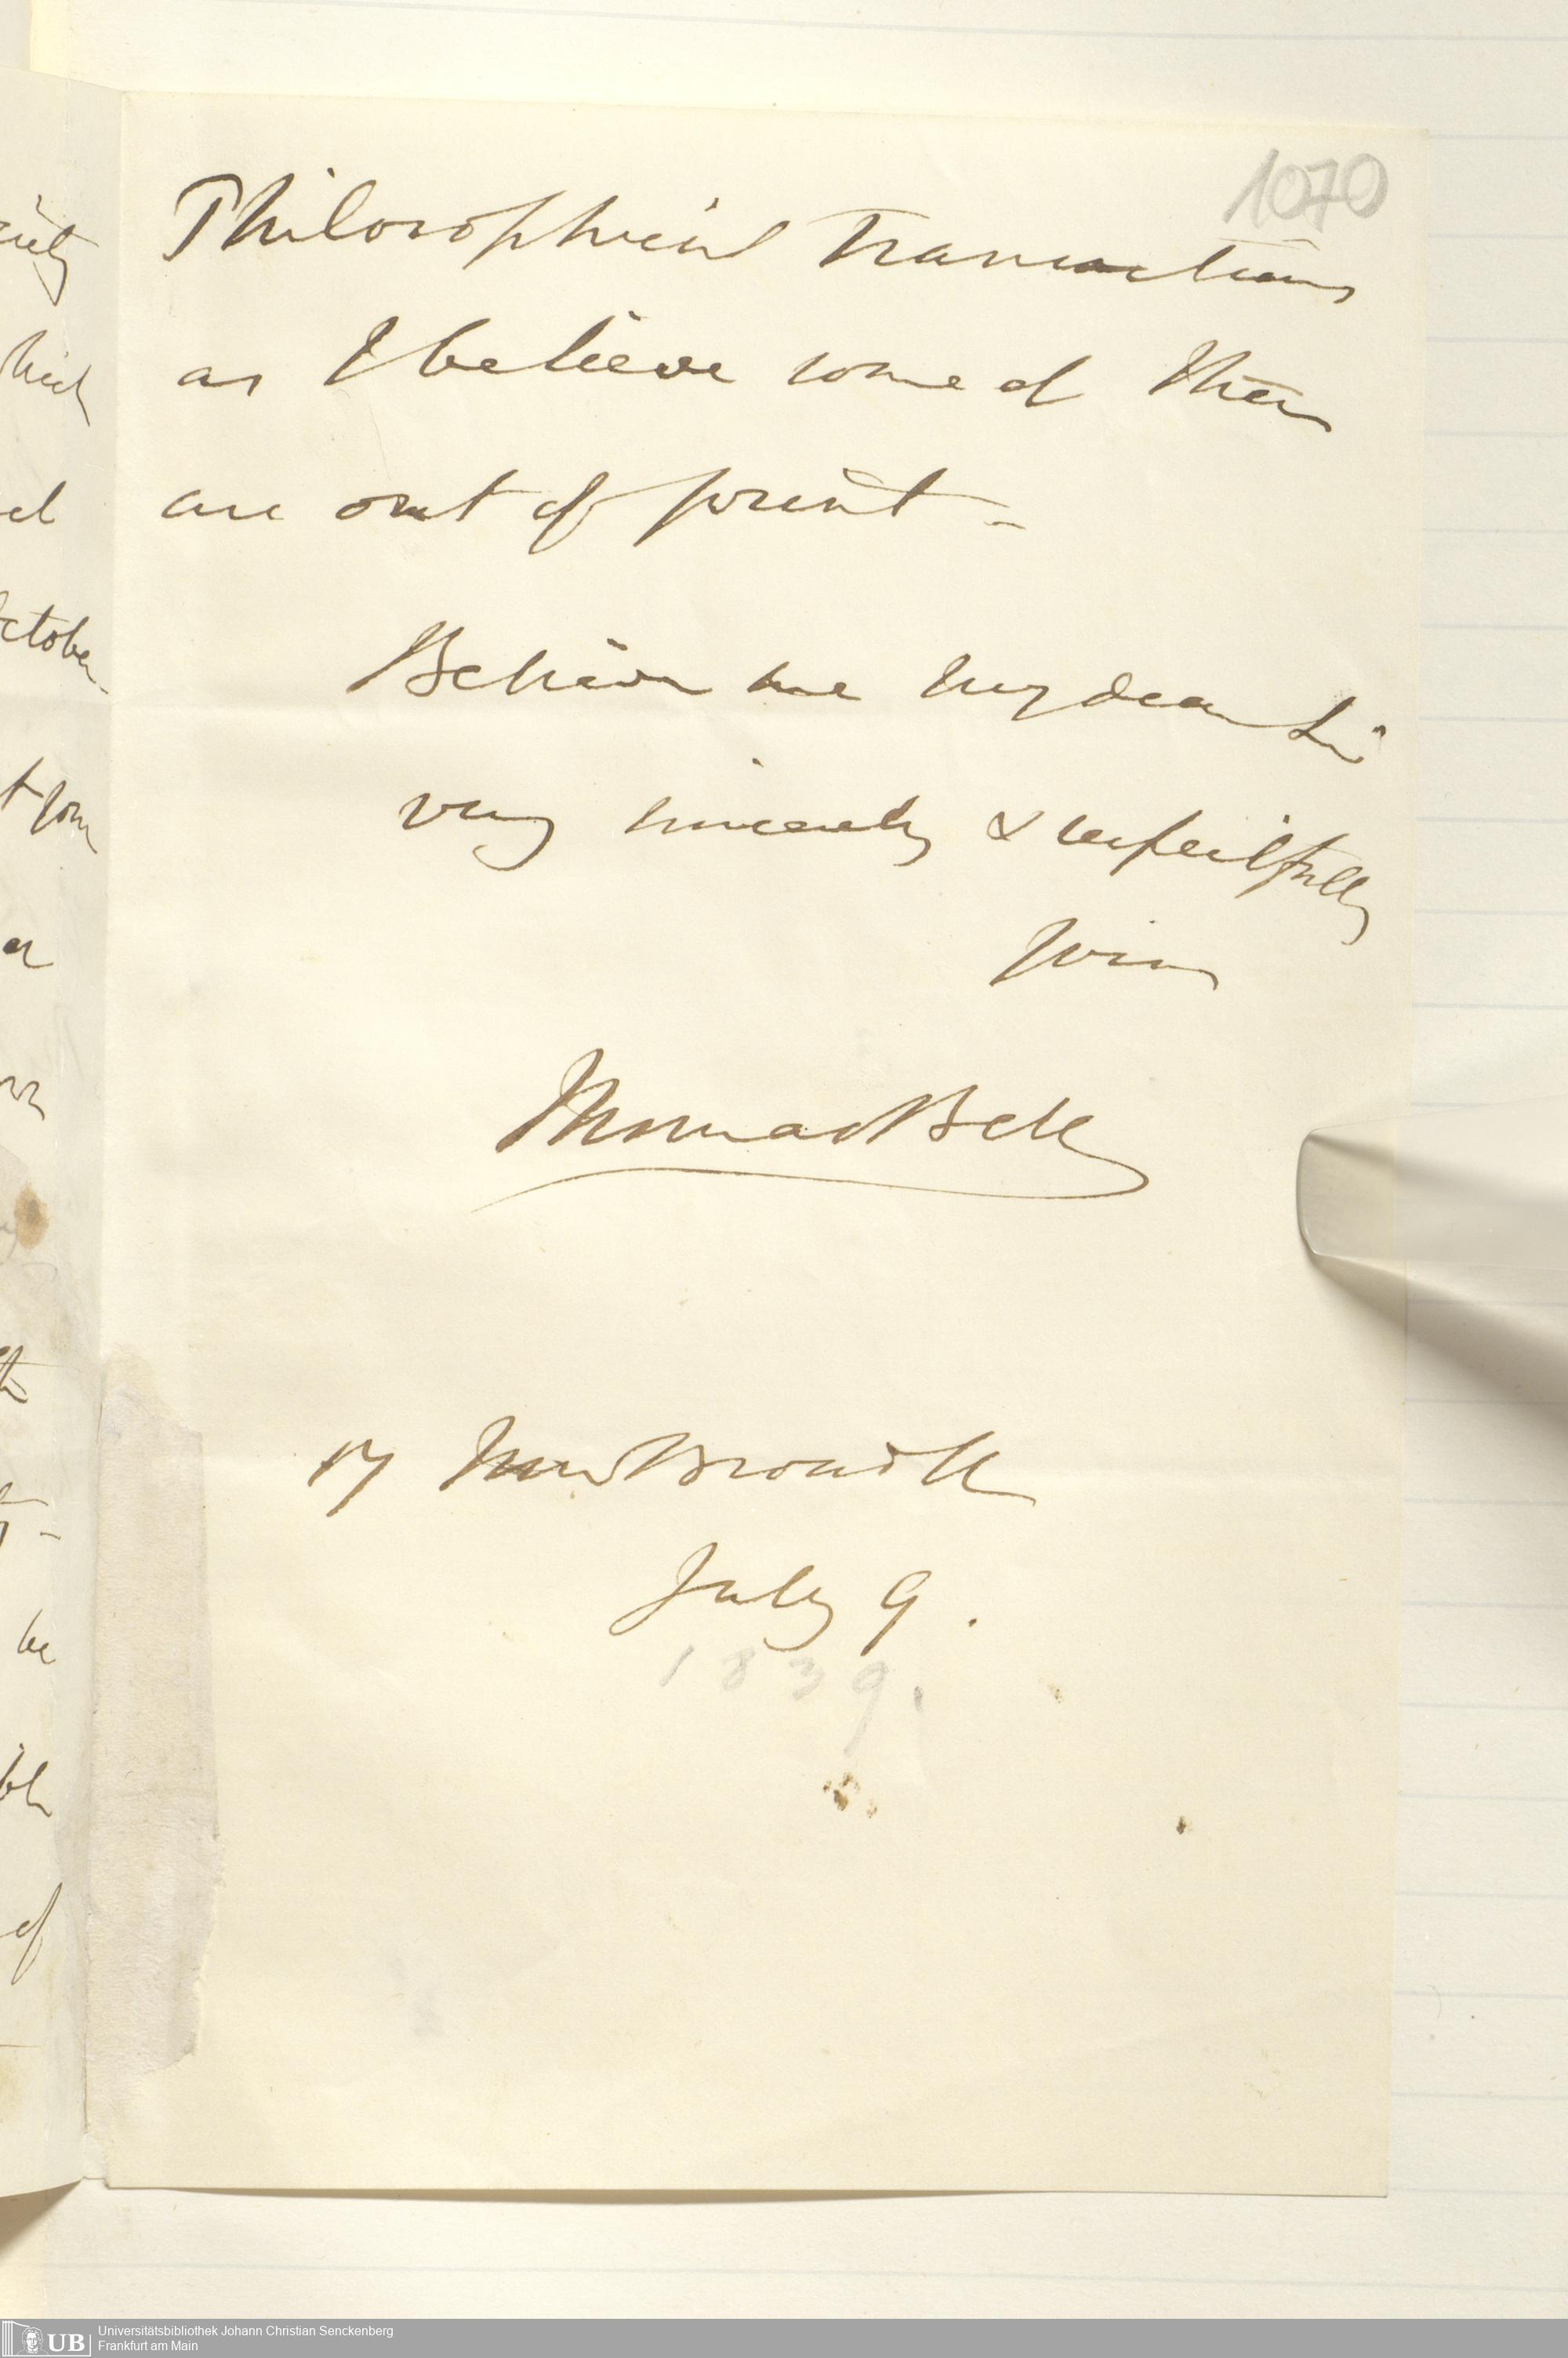 1070
Philosophical Transactions
as I believe some of them
are out of print -
Believe me my dear Sir
very sincerely & respectfully
yours
Thomas Bell
17 New Broad St
July 9.
1839.
ctober
of
UB Universitätsbibliothek Johann Christian Senckenberg
Frankfurt am Main